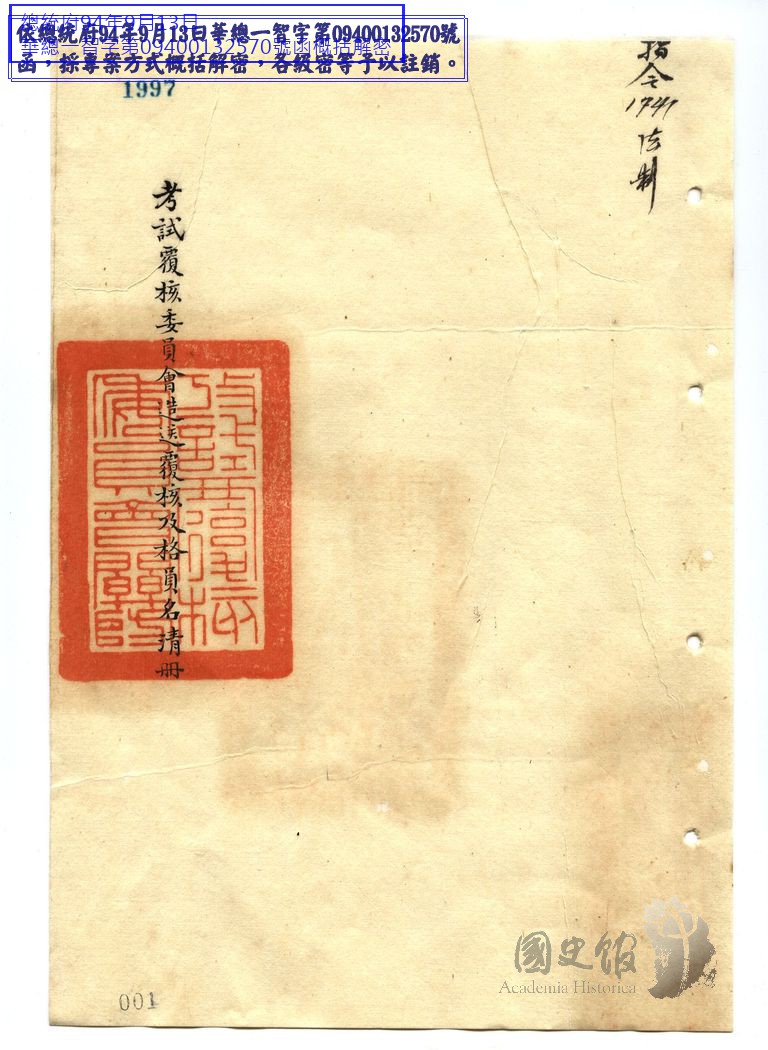 總統府94年9月13日
華總一智字第09400132570號函概括解密
依總統府94年9月13日華總一智字第09400132570號
函，採專案方式概括解密，各級密等予以註銷。
1997
指令
1747
法制
考試覆核委員會造送覆核及格員名清冊
國史館
Academia Historica
001